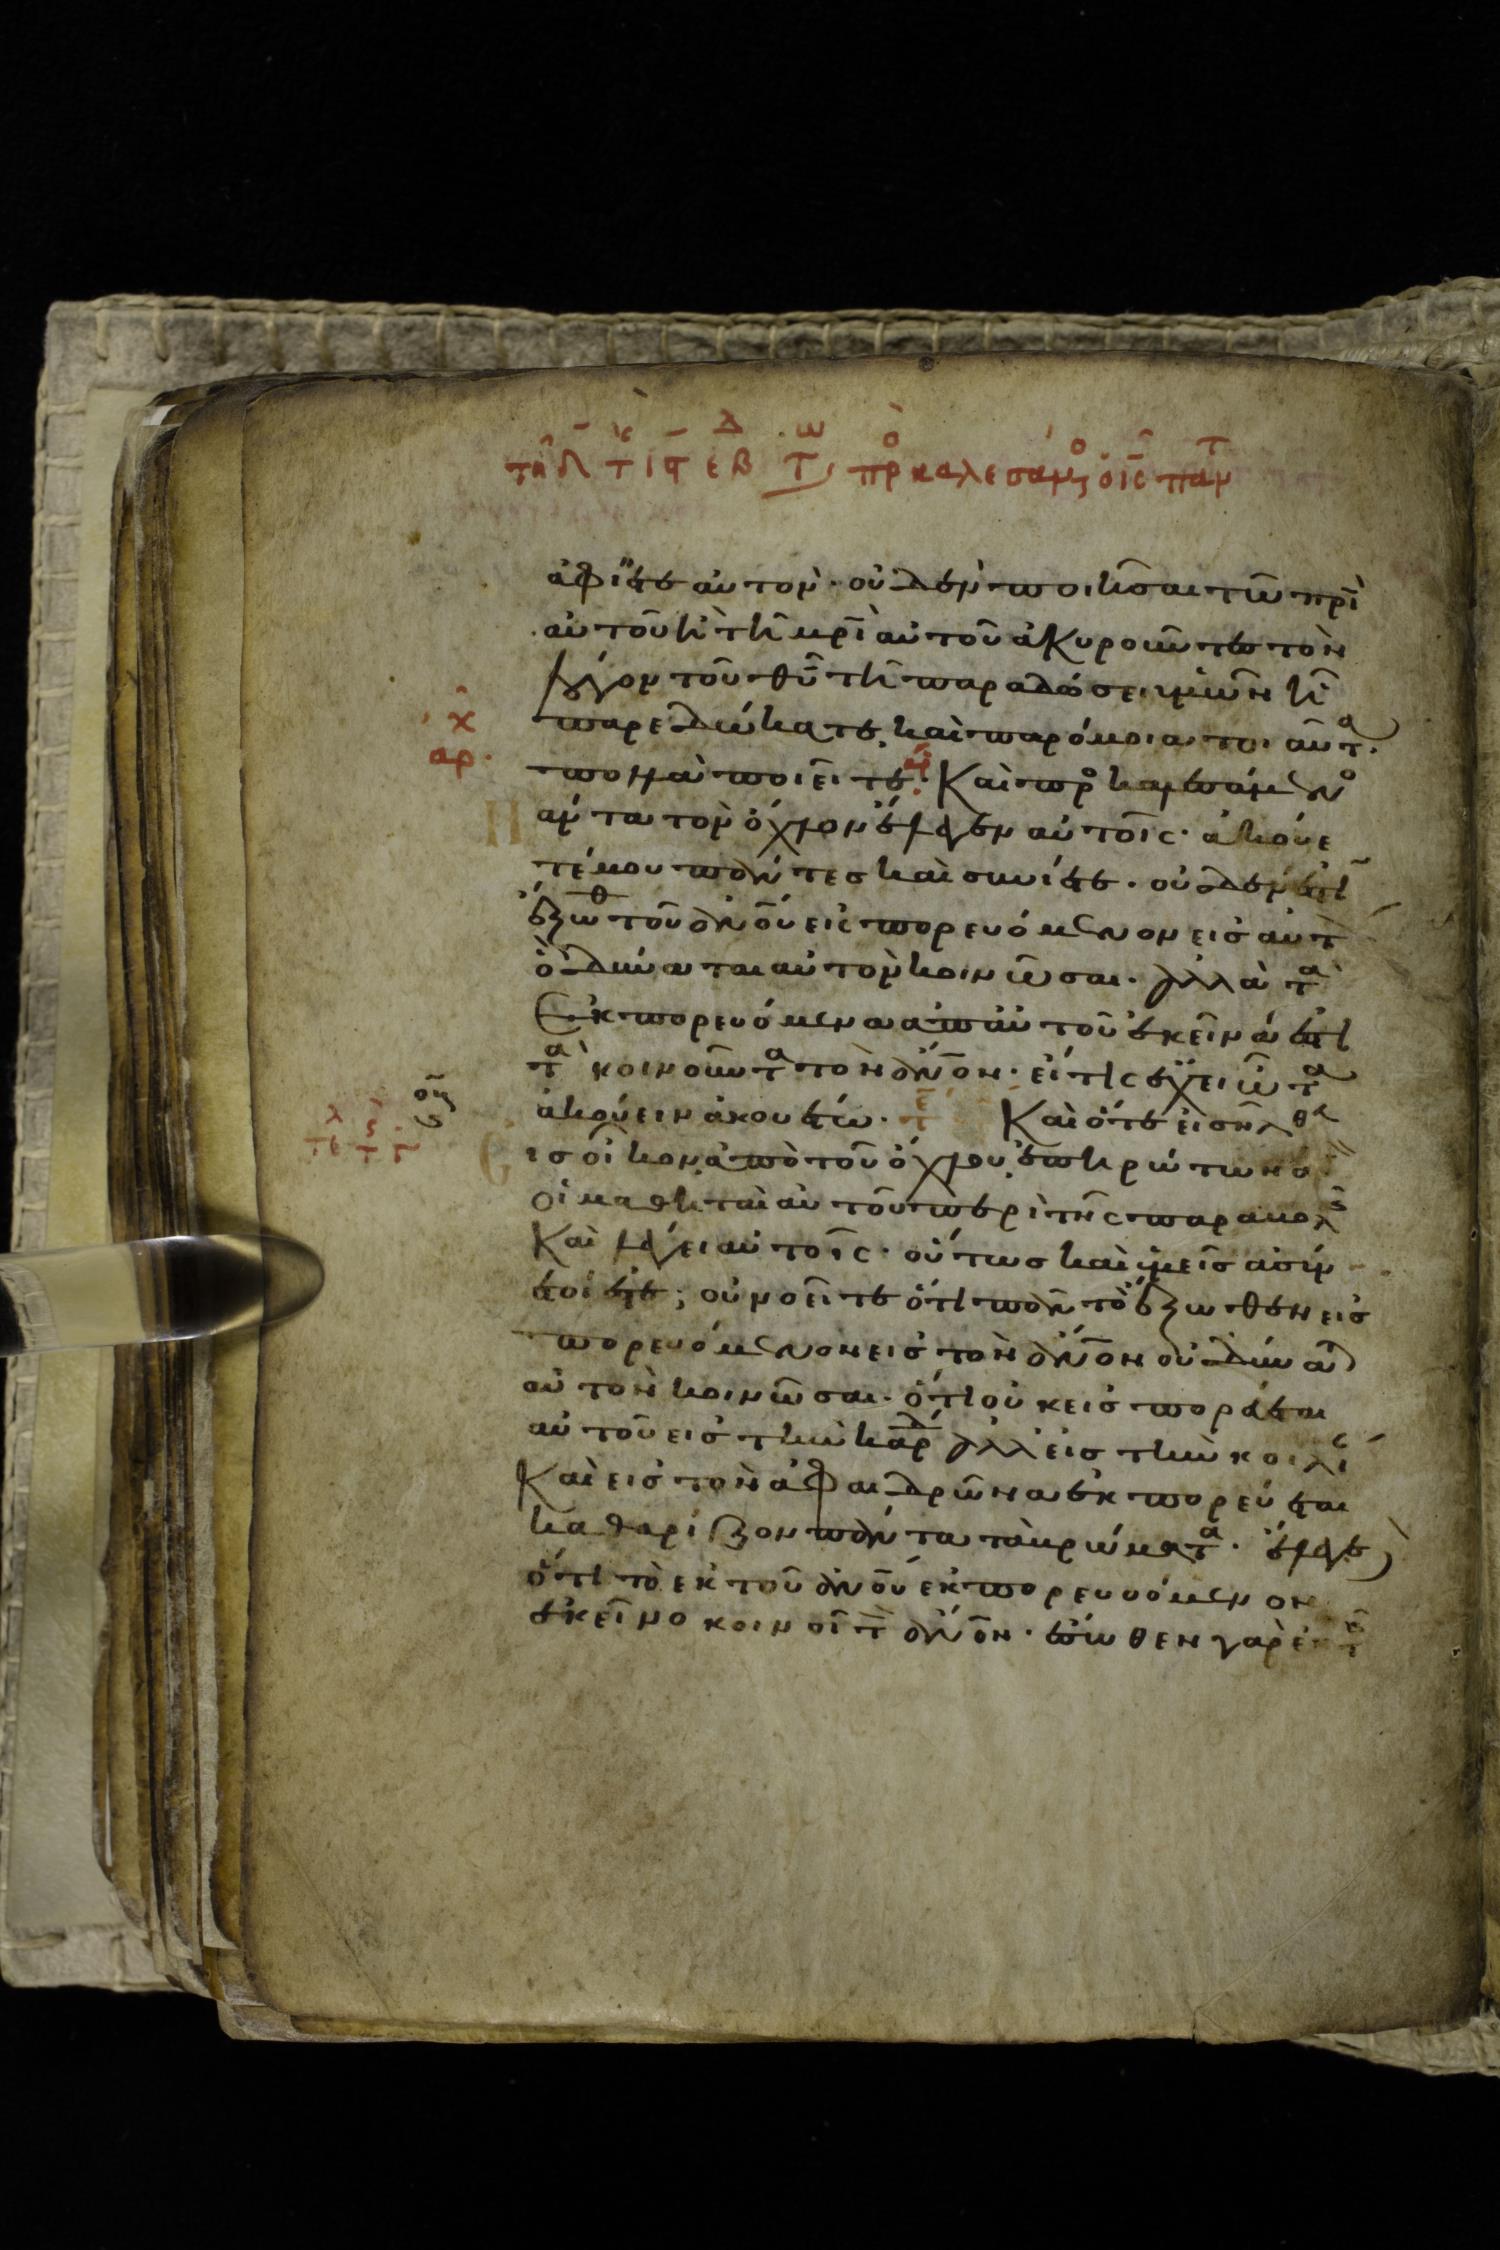 ἀφίετε αὐτὸν· οὐδὲν ποιῆσαι τῶ πρὶ
αὐτοῦ ἢ τῆ μρὶ αὐτοῦ ἀκυροῦντες τὸν
λόγον τοῦ θῦ τῆ παραδόσει ὑμῶν ἧ
παρεδώκατε. καὶ παρόμοια τοιαῦτα
πολλὰ ποιεῖτε· Καὶ προσκαλεσάμενος
ἅπαντα τὸν ὄχλον ἔλεγεν αὐτοῖς· ἀκούε
τέ μου πάντες καὶ συνίετε· οὐδέν ἐστὶ
ἔξωθ τοῦ ἀνοῦ εἰσπορευόμενον εἰς αὐτ
ὃ δύναται αὐτὸν κοινῶσαι· ἀλλὰ τὰ
Ἐκπορευόμενα ἀπ αὐτοῦ ἐκεῖνά ἐστὶ
τὰ κοινοῦντα τὸν ἄνον· εἴ τις ἔχει ὦτα
ἀκούειν ἀκουέτω· Καὶ ὅτε εἰσῆλθεν
εἰς οἶκον ἀπὸ τοῦ ὄχλου, ἐπηρώτων
οἱ μαθηταὶ αὐτοῦ περὶ τῆς παραβολ
Καὶ λέγει αὐτοῖς· οὕτως καὶ ὑμεῖς ἀσύν
ετοί ἐστε; οὐ νοεῖτε ὅτι πᾶν τὸ ἔξωθεν εἰσ
πορευόμενον εἰς τὸν ἄνον οὐ δύναται
αὐτὸν κοινῶσαι· ὅτι οὐκ εἰσπορεύεται
αὐτοῦ εἰς τὴν καρδ ἀλλ εἰς τὴν κοιλί
Καὶ εἰς τὸν ἀφεδρῶνα ἐκπορεύεται
καθαρίζον πάντα τὰ βρώματα· ἔλεγε
ὅτι τὸ ἐκ τοῦ ἀνοῦ ἐκπορευόμενον
ἐκεῖνο κοινοῖ τ ἄνον· ἔσωθεν γὰρ ἐκ τ